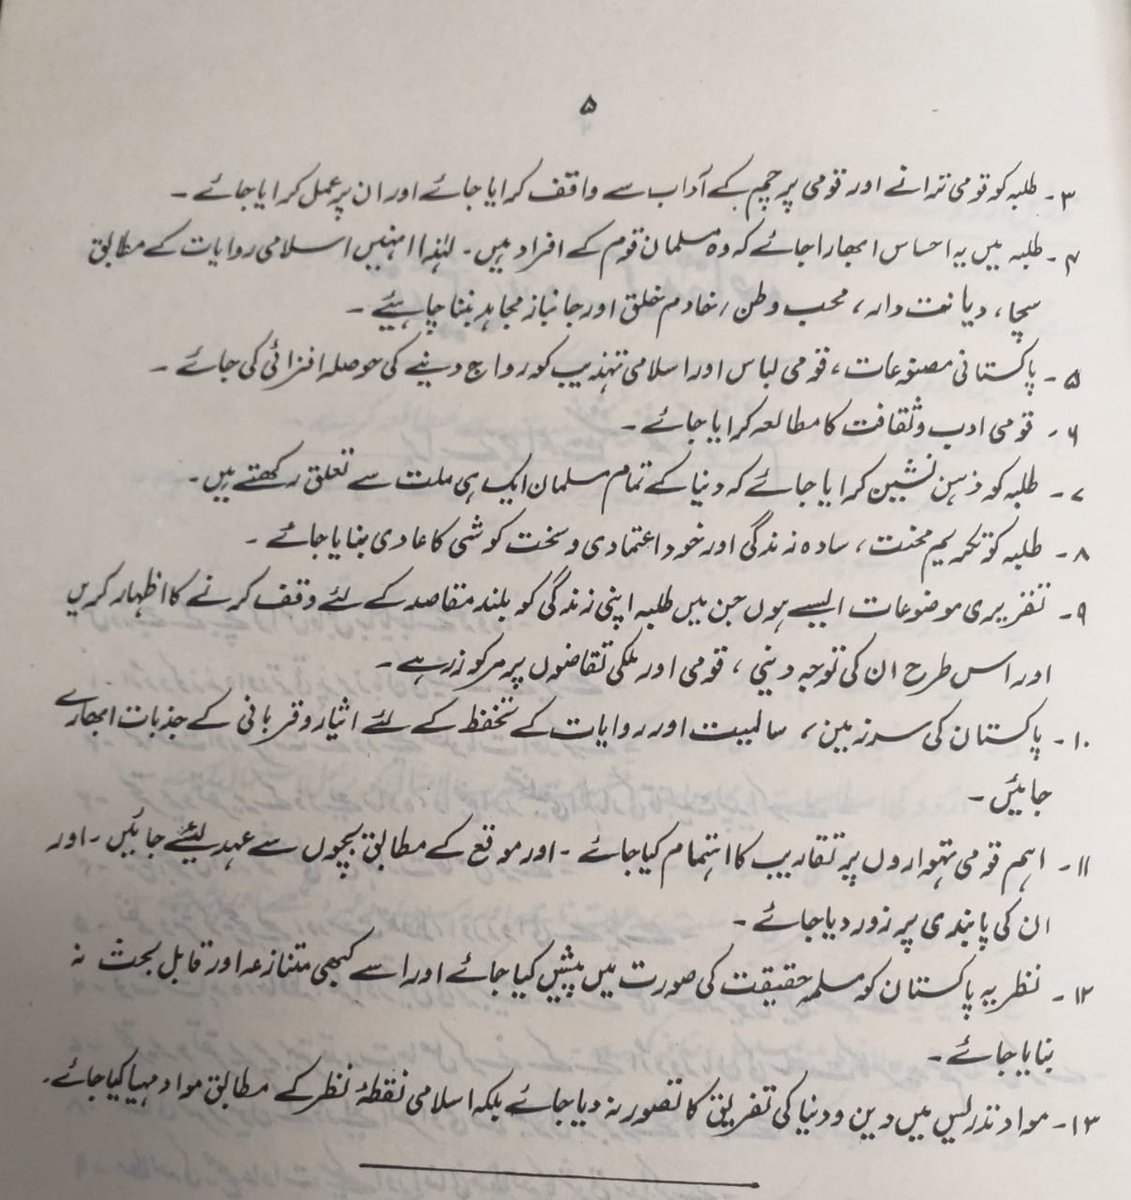 ۵
۳۔ طلبہ کو قومی ترانے اور قومی پرچم کے آداب سے واقف کرایا جائے اور ان پر عمل کرایا جائے ۔
۴۔ طلبہ میں یہ احساس ابھارا جائے کہ وہ مسلمان قوم کے افراد ہیں۔ لہٰذا انہیں اسلامی روایات کے مطابق
سچا، دیانت دار، محب وطن، خادم خلق اور جانباز مجاہد بننا چاہیئے ۔
۵۔ پاکستانی مصنوعات، قومی لباس اور اسلامی تہذیب کو رواج دینے کی حوصلہ افزائی کی جائے ۔
۶۔ قومی ادب و ثقافت کا مطالعہ کرایا جائے ۔
۷۔ طلبہ کو ذہن نشین کرایا جائے کہ دنیا کے تمام مسلمان ایک ہی ملت سے تعلق رکھتے ہیں۔
۸۔ طلبہ کو تکریم محنت، سادہ زندگی اور خود اعتمادی و سخت کوشی کا عادی بنایا جائے ۔
۹۔ تقریری موضوعات ایسے ہوں جن میں طلبہ اپنی زندگی کو بلند مقاصد کے لئے وقف کرنے کا اظہار کریں
اور اس طرح ان کی توجہ دینی، قومی اور ملکی تقاضوں پر مرکوز رہے ۔
۱۰۔ پاکستان کی سرزمین، سالمیت اور روایات کے تحفظ کے لئے ایثار و قربانی کے جذبات ابھارے
جائیں ۔
۱۱۔ اہم قومی تہواروں پر تقاریب کا اہتمام کیا جائے ۔ اور موقع کے مطابق بچوں سے عہد لیئے جائیں ۔ اور
ان کی پابندی پر زور دیا جائے ۔
۱۲۔ نظریہ پاکستان کو مسلمہ حقیقت کی صورت میں پیش کیا جائے اور اسے کبھی متنازعہ اور قابل بحث نہ
بنایا جائے ۔
۱۳۔ مواد تدریس میں دین و دنیا کی تفریق کا تصور نہ دیا جائے بلکہ اسلامی نقطۂ نظر کے مطابق مواد مہیا کیا جائے ۔